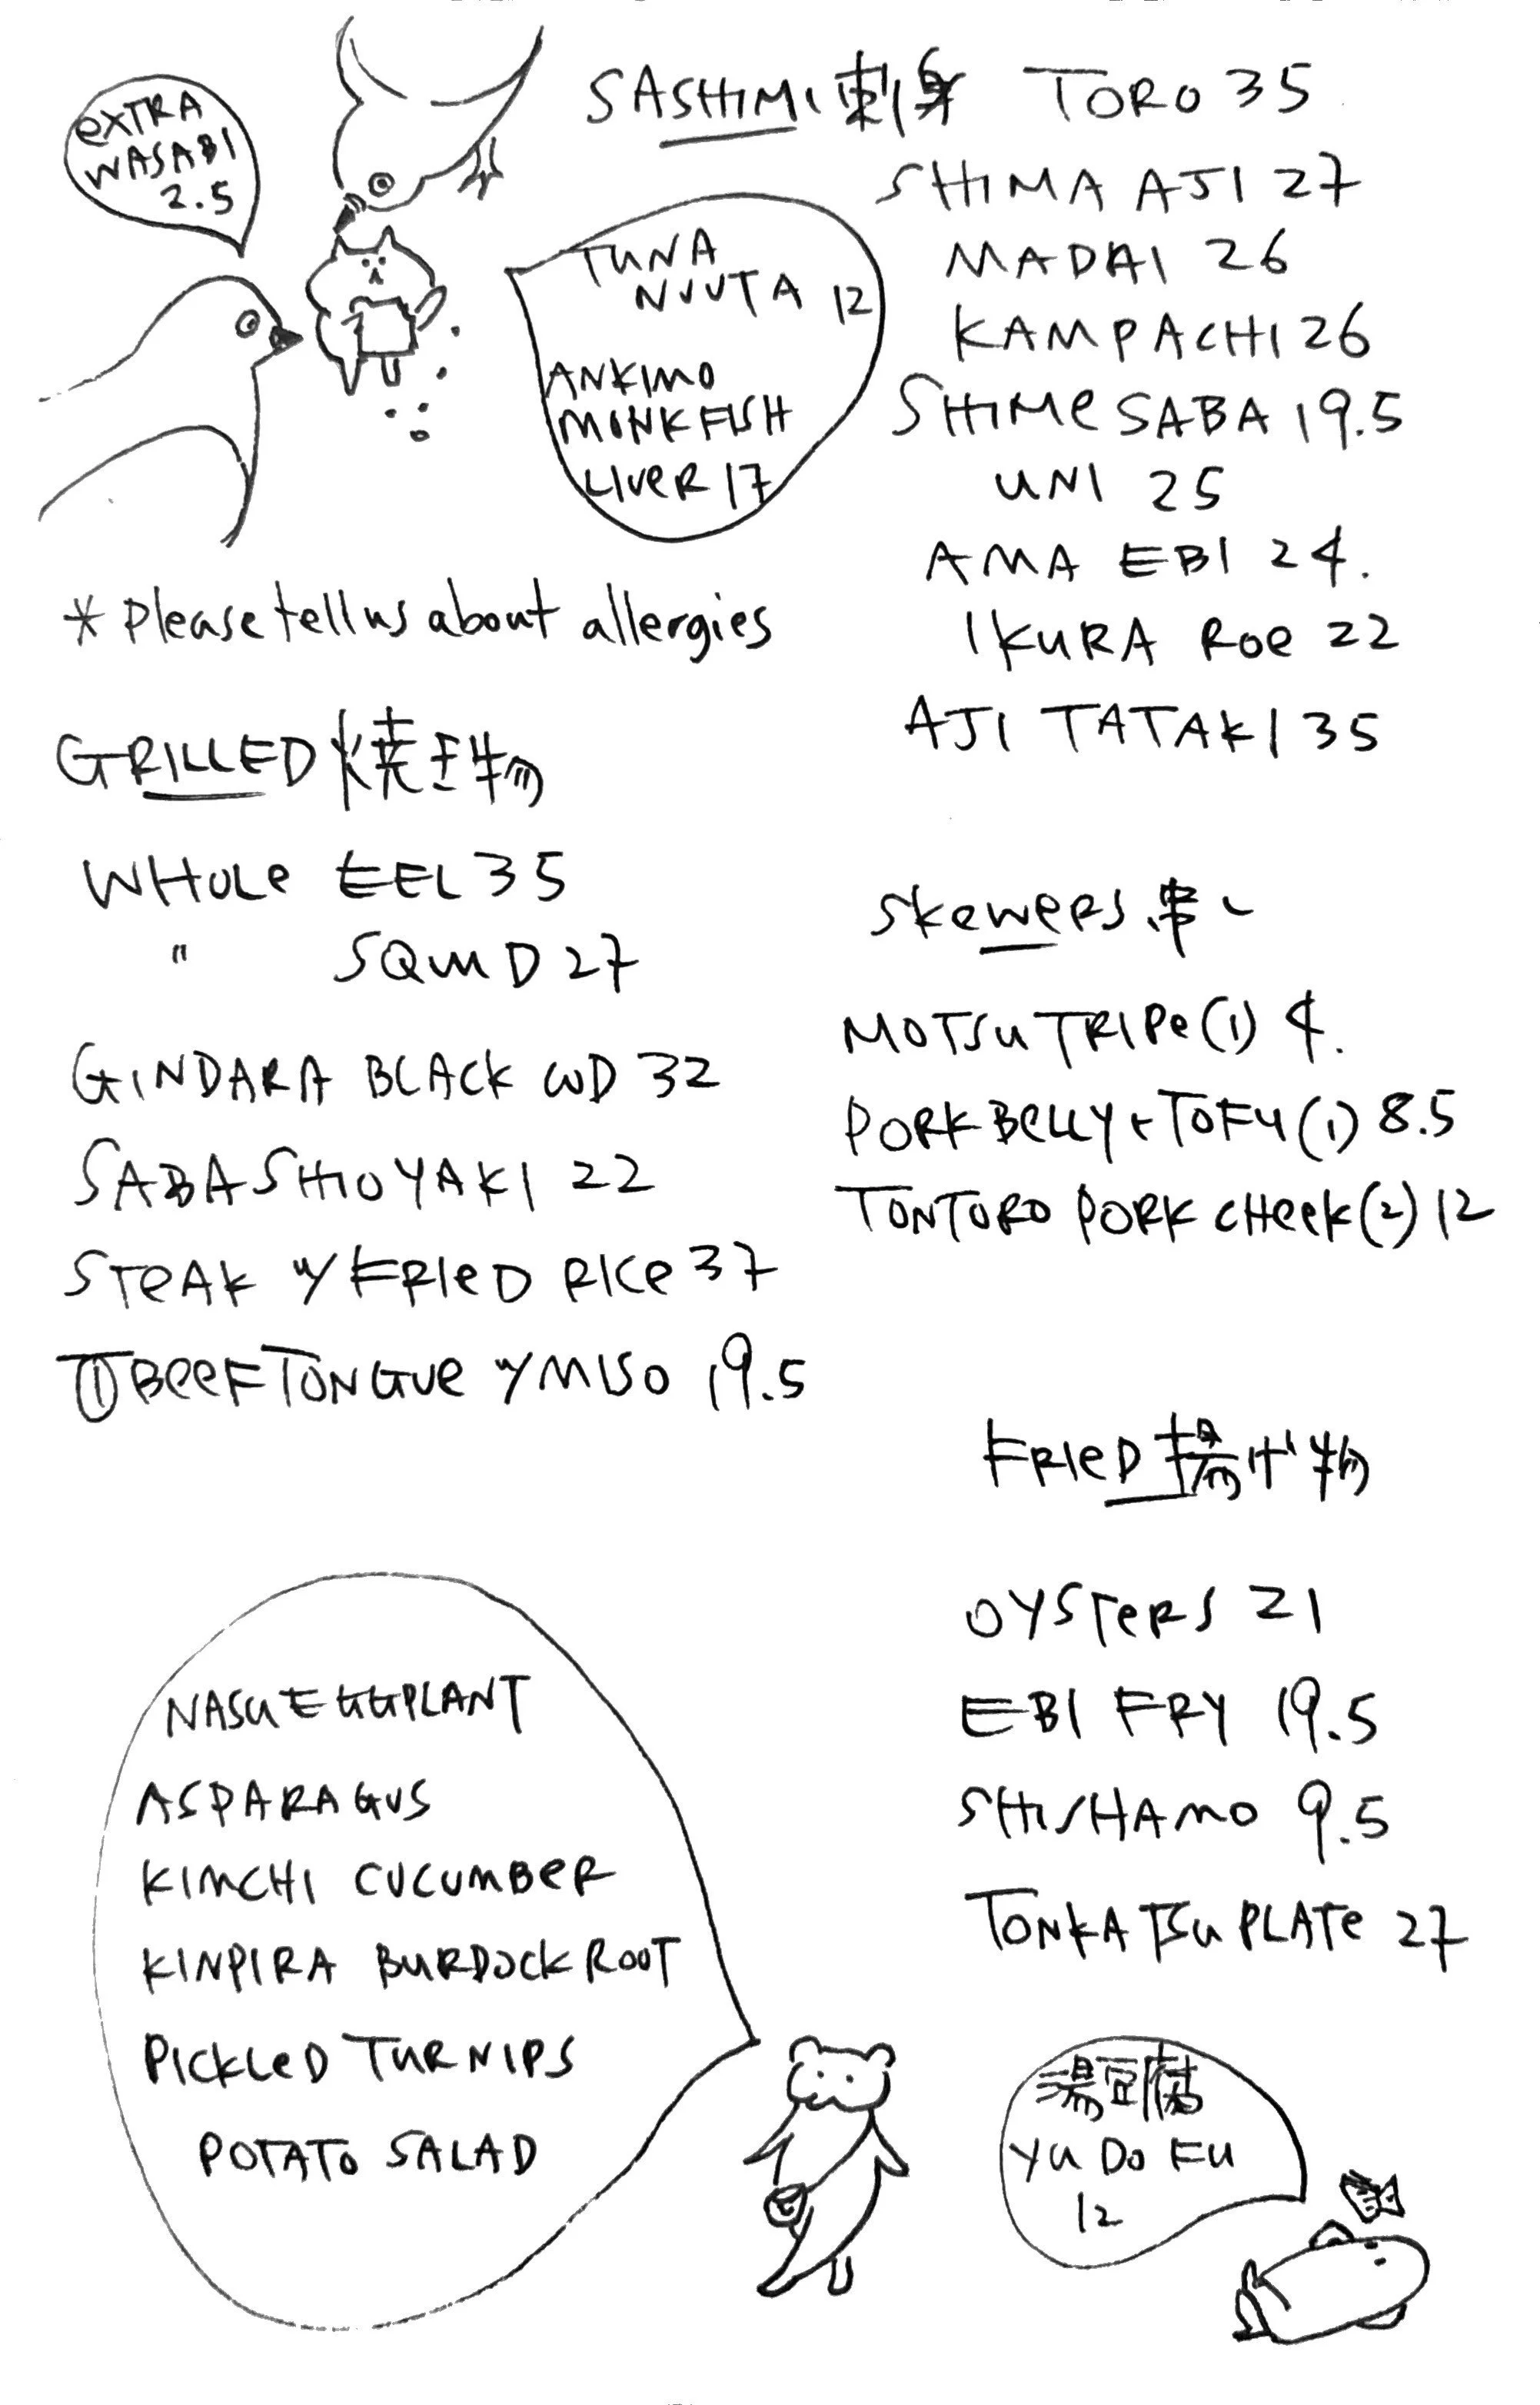 EXTRA
WASABI
2.5
SASHIMI 刺身 TORO 35
SHIMA AJI 27
MADAI 26
KAMPACHI 26
SHIME SABA 19.5
UNI 25
AMA EBI 24.
IKURA ROE 22
AJI TATAKI 35
TUNA
NUUTA 12
ANKIMO
MONKFISH
LIVER 17
* Please tell us about allergies
GRILLED 焼き物
WHOLE EEL 35
" SQUID 27
GINDARA BLACK COD 32
SABA SHIOYAKI 22
STEAK w/ FRIED RICE 37
BEEF TONGUE w/ MISO 19.5
SKEWERS 串し
MOTSU TRIPE (1) 4.
PORK BELLY + TOFU (1) 8.5
TONTORO PORK CHEEK (2) 12
FRIED 揚げ物
OYSTERS 21
EBI FRY 19.5
SHISHAMO 9.5
TONKATSU PLATE 27
NASU EGGPLANT
ASPARAGUS
KIMCHI CUCUMBER
KINPIRA BURDOCK ROOT
PICKLED TURNIPS
POTATO SALAD
湯豆腐
YU DO FU
12